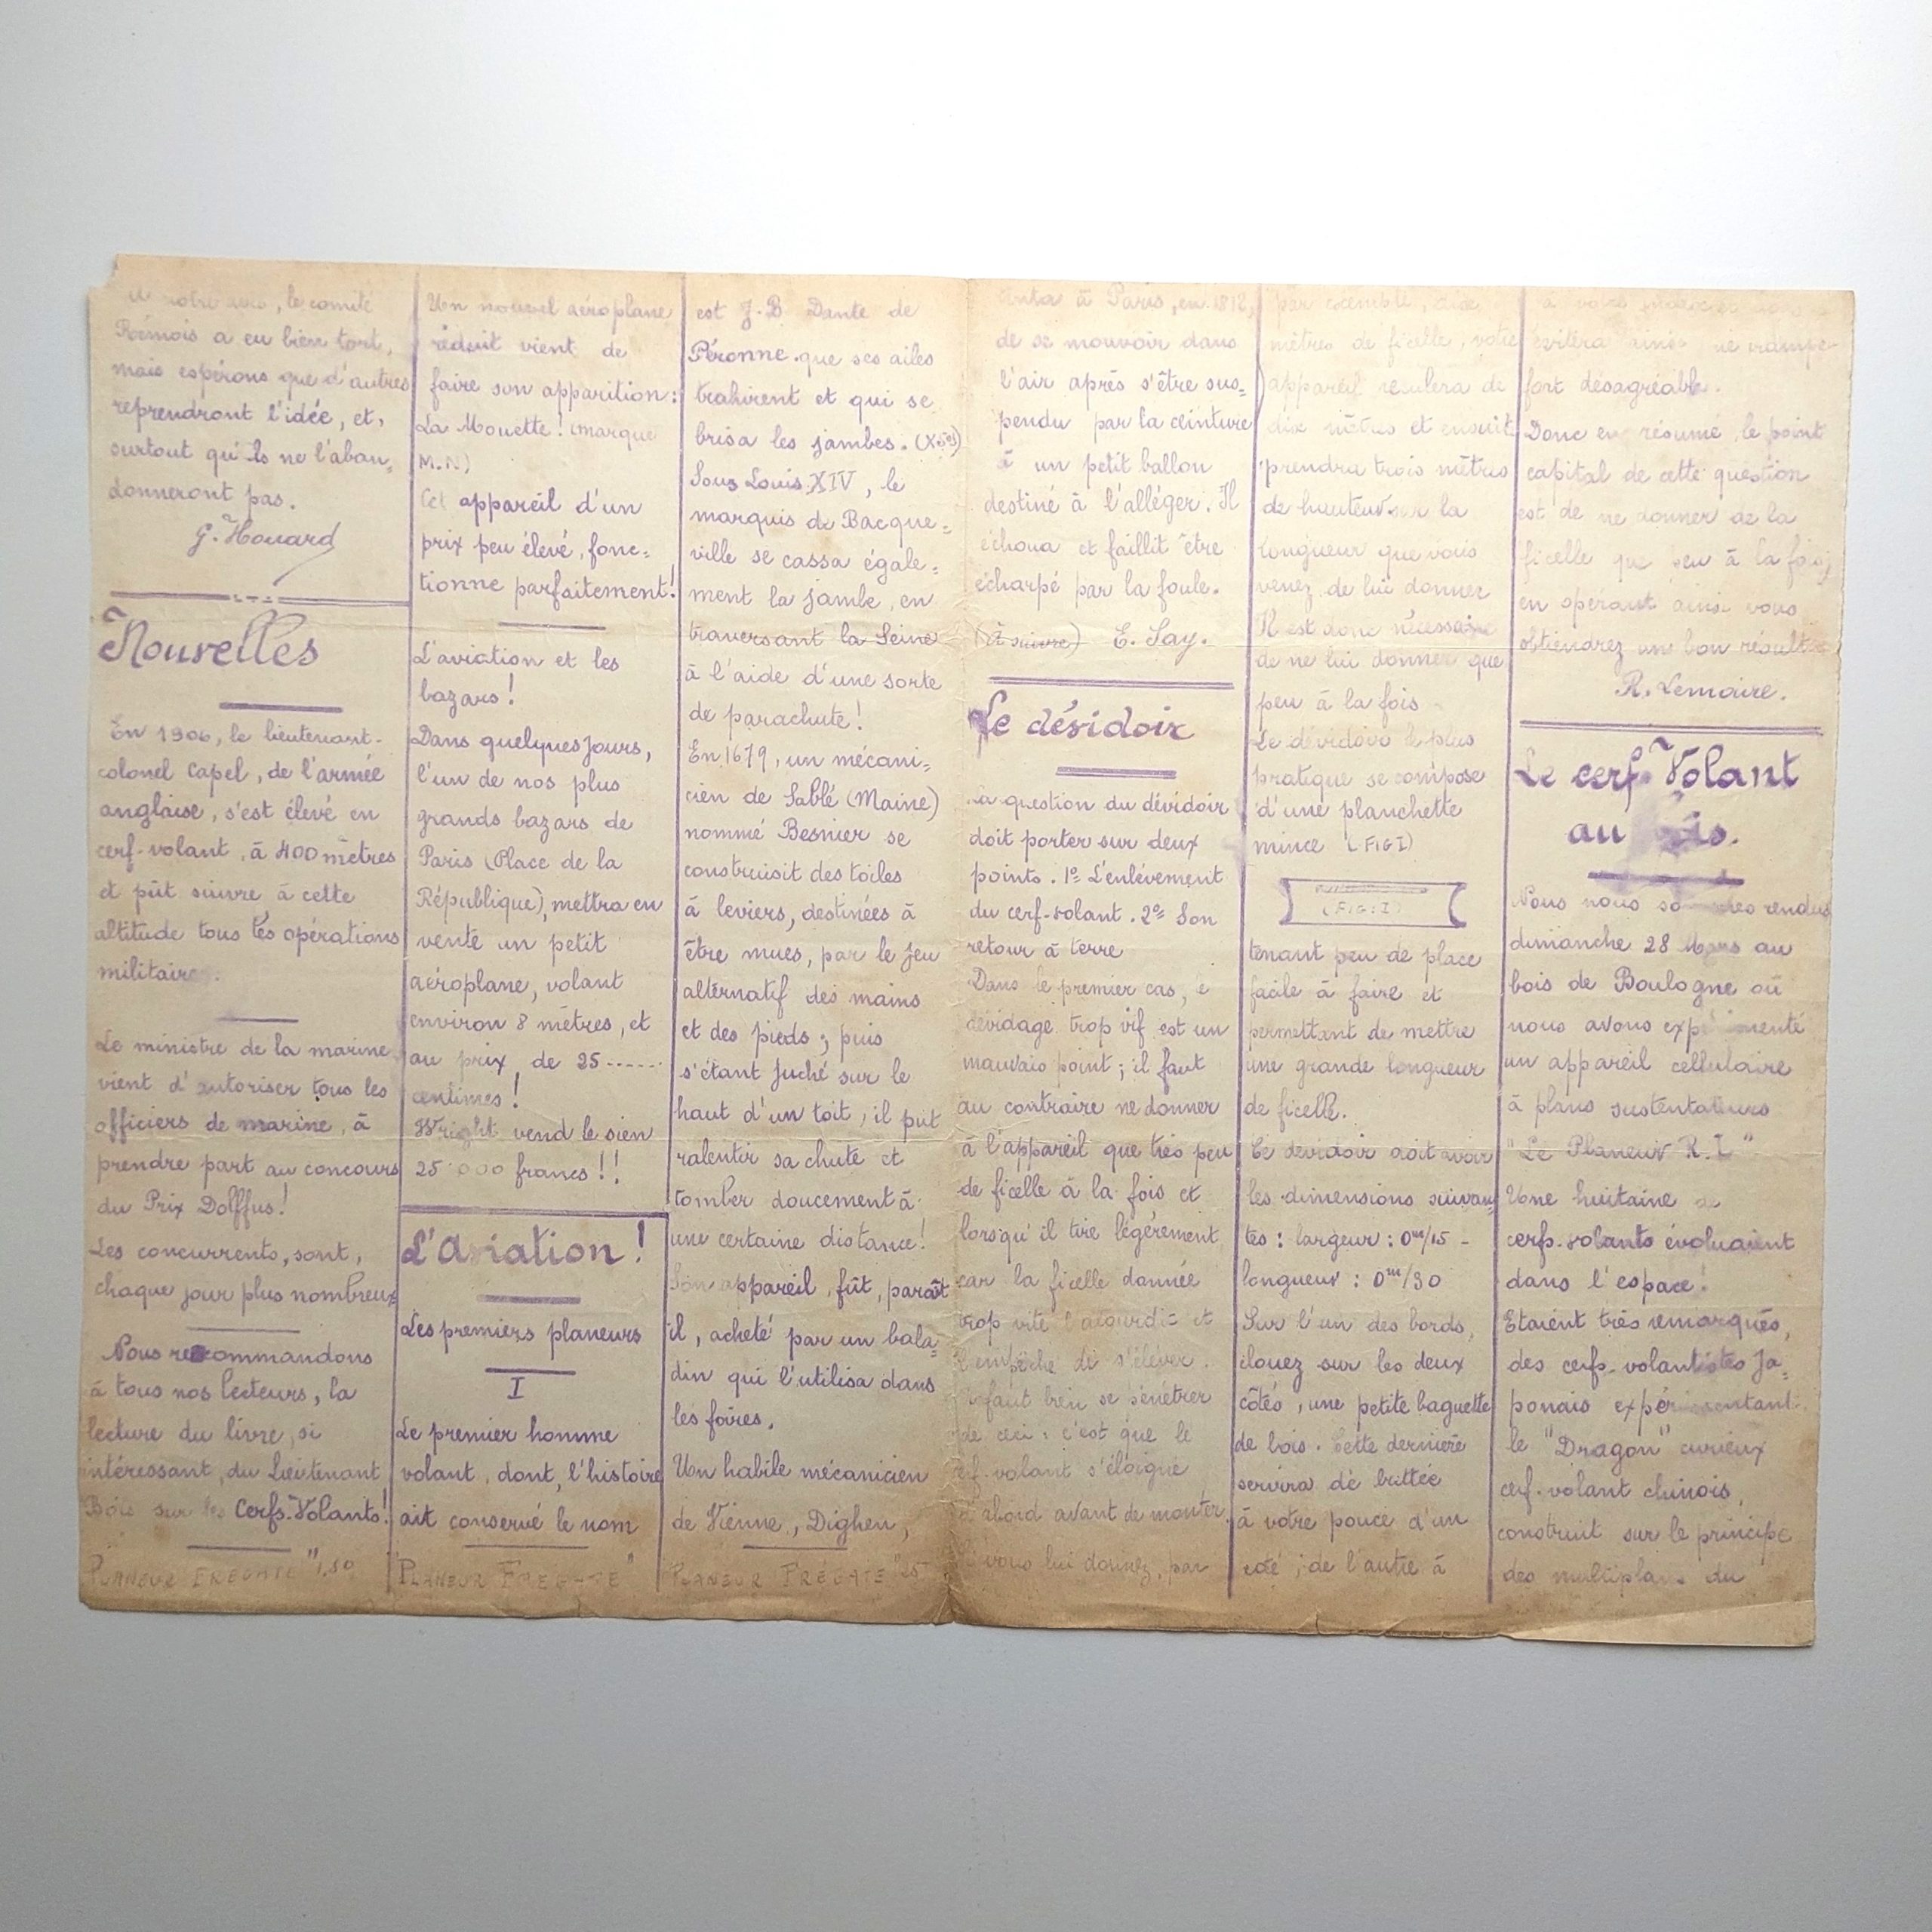 notre avis, le comité
Rémois a eu bien tort,
mais espérons que d'autres
reprendront l'idée, et,
surtout qu'ils ne l'aban=
donneront pas.
G. Houard
Nouvelles
En 1906, le lieutenant-
colonel Capel, de l'armée
anglaise, s'est élevé en
cerf-volant, à 400 mètres
et pût suivre à cette
altitude tous les opérations
militaires.
Le ministre de la marine
vient d'autoriser tous les
officiers de marine, à
prendre part au concours
du Prix Dolffus!
Les concurrents, sont,
chaque jour plus nombreux
Nous recommandons
à tous nos lecteurs, la
lecture du livre, si
intéressant, du Lieutenant
Bois sur les Cerfs-Volants!
PLANEUR FREGATE "1,50
Un nouvel aéroplane
réduit vient de
faire son apparition:
La Mouette! (marque
M.N)
Cet appareil d'un
prix peu élevé, fonc=
tionne parfaitement!
L'aviation et les
bazars!
Dans quelques jours,
l'un de nos plus
grands bazars de
Paris (Place de la
République), mettra en
vente un petit
aéroplane, volant
environ 8 mètres, et
au prix de 25-----
centimes!
Wright vend le sien
25.000 francs!!
L'Aviation!
Les premiers planeurs
I
Le premier homme
volant, dont, l'histoire
ait conservé le nom
"PLANEUR FREGATE"
est J-B Dante de
Péronne que ses ailes
trahirent et qui se
brisa les jambes.
Sous Louis XIV, le
marquis de Bacque=
ville se cassa égale=
ment la jambe, en
traversant la Seine
à l'aide d'une sorte
de parachute!
En 1679, un mécani=
cien de Sablé (Maine)
nommé Besnier se
construisit des toiles
à leviers, destinées à
être mues, par le jeu
alternatif des mains
et des pieds; puis
s'étant juché sur le
haut d'un toit, il put
ralentir sa chute et
tomber doucement à
une certaine distance!
Son appareil, fût, paraît
il, acheté par un bala=
din qui l'utilisa dans
les foires.
Un habile mécanicien
de Vienne, Dighen,
PLANEUR FRÉGATE "25
tenta à Paris, en 1812,
de se mouvoir dans
l'air après s'être sus=
pendu par la ceinture
à un petit ballon
destiné à l'alléger. Il
échoua et faillit être
écharpé par la foule.
(à suivre) E. Say.
Le dévidoir
La question du dévidoir
doit porter sur deux
points. 1º L'enlèvement
du cerf-volant. 2º Son
retour à terre
Dans le premier cas, le
dévidage trop vif est un
mauvais point; il faut
au contraire ne donner
à l'appareil que très peu
de ficelle à la fois et
lorsqu'il tire légèrement
car la ficelle donnée
trop vite l'alourdit et
l'empêche de s'élever.
faut bien se pénétrer
de ceci: c'est que le
cerf-volant s'éloigne
d'abord avant de monter.
vous lui donnez, par
par exemple, dix
mètres de ficelle, votre
appareil reculera de
dix mètres et ensuite
prendra trois mètres
de hauteur sur la
longueur que vous
venez de lui donner
Il est donc nécessaire
de ne lui donner que
peu à la fois
Le dévidoir le plus
pratique se compose
d'une planchette
mince (FIG I)
(FIG:I)
tenant peu de place
facile à faire et
permettant de mettre
une grande longueur
de ficelle.
Ce dévidoir doit avoir
les dimensions suivan=
tes: largeur: 0m/15 -
longueur: 0m/30
Sur l'un des bords,
clouez sur les deux
côtés, une petite baguette
de bois. Cette dernière
servira de buttée
à votre pouce d'un
côté; de l'autre à
à votre
évitera ainsi une crampe
fort désagréable.
Donc en résumé, le point
capital de cette question
est de ne donner de la
ficelle que peu à la fois
en opérant ainsi vous
obtiendrez un bon résultat
R. Lemaire.
Le cerf-Volant
au bois.
Nous nous sommes rendus
dimanche 28 Mars au
bois de Boulogne où
nous avons expérimenté
un appareil cellulaire
à plans sustentateurs
"Le Planeur R.I"
Une huitaine de
cerfs-volants évoluaient
dans l'espace!
Etaient très remarqués,
des cerfs-volantistes Ja=
ponais expérimentant
le "Dragon" curieux
cerf-volant chinois,
construit sur le principe
des multiplans du